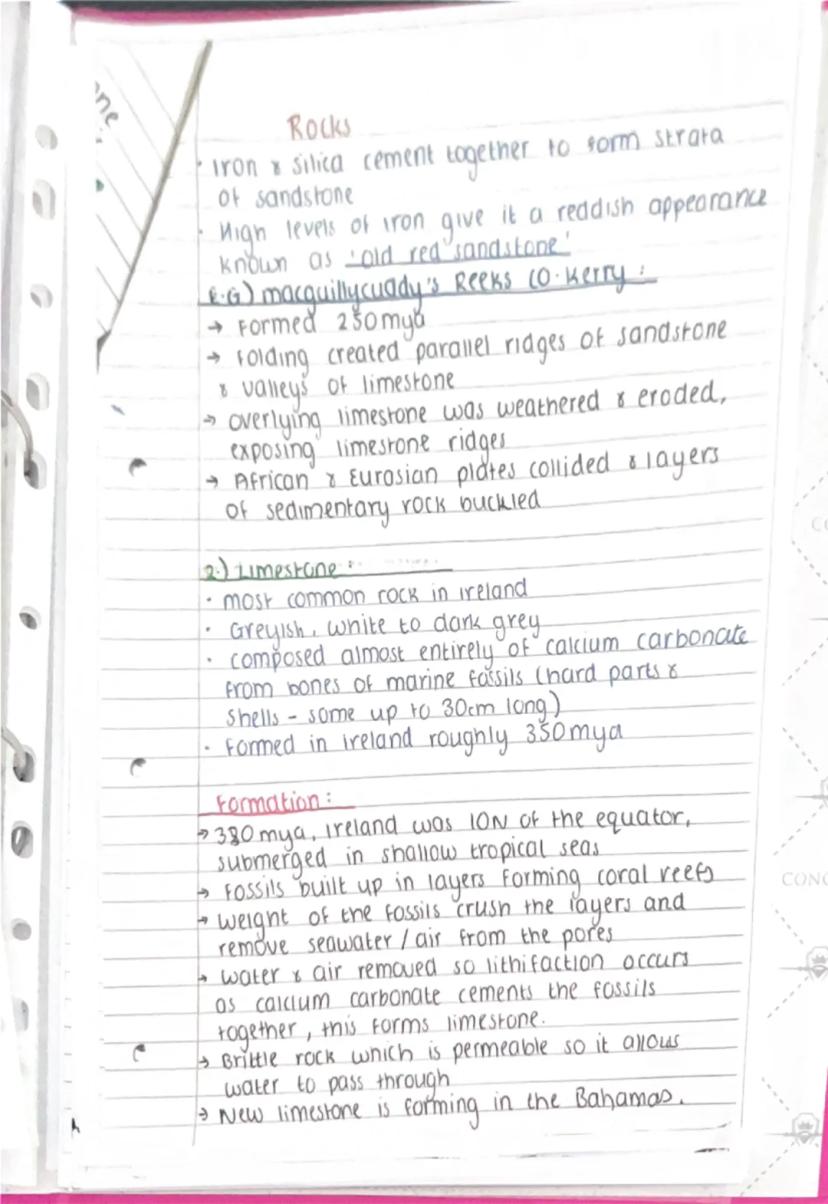 one
Rocks
· Iron & silica cement together to form strata
of sandstone
· High levels of iron give it a reddish appearance
known as 'old red sandstone'
E.G) macquillycuady's Reeks CO. Kerry :
→ Formed 250mya
→ Folding created parallel ridges of sandstone
& valleys of limestone
→ overlying limestone was weathered & eroded,
exposing limestone ridges
→ African & Eurasian plates collided & layers
of sedimentary rock buckled
2.) Limestone :
· most common rock in ireland
· Greyish, white to dark grey
· composed almost entirely of calcium carbonate
from bones of marine fossils (hard parts &
shells - some up to 30cm long)
· Formed in ireland roughly 350mya
Formation :
→ 380 mya, ireland was 10N of the equator,
submerged in shallow tropical seas
→ Fossils built up in layers forming coral reefs
→ weight of the fossils crush the layers and
remove seawater / air from the pores
→ water & air removed so lithifaction occurs
as calcium carbonate cements the fossils
together, this forms limestone.
→ Brittle rock which is permeable so it allows
water to pass through
→ New limestone is forming in the Bahamas.